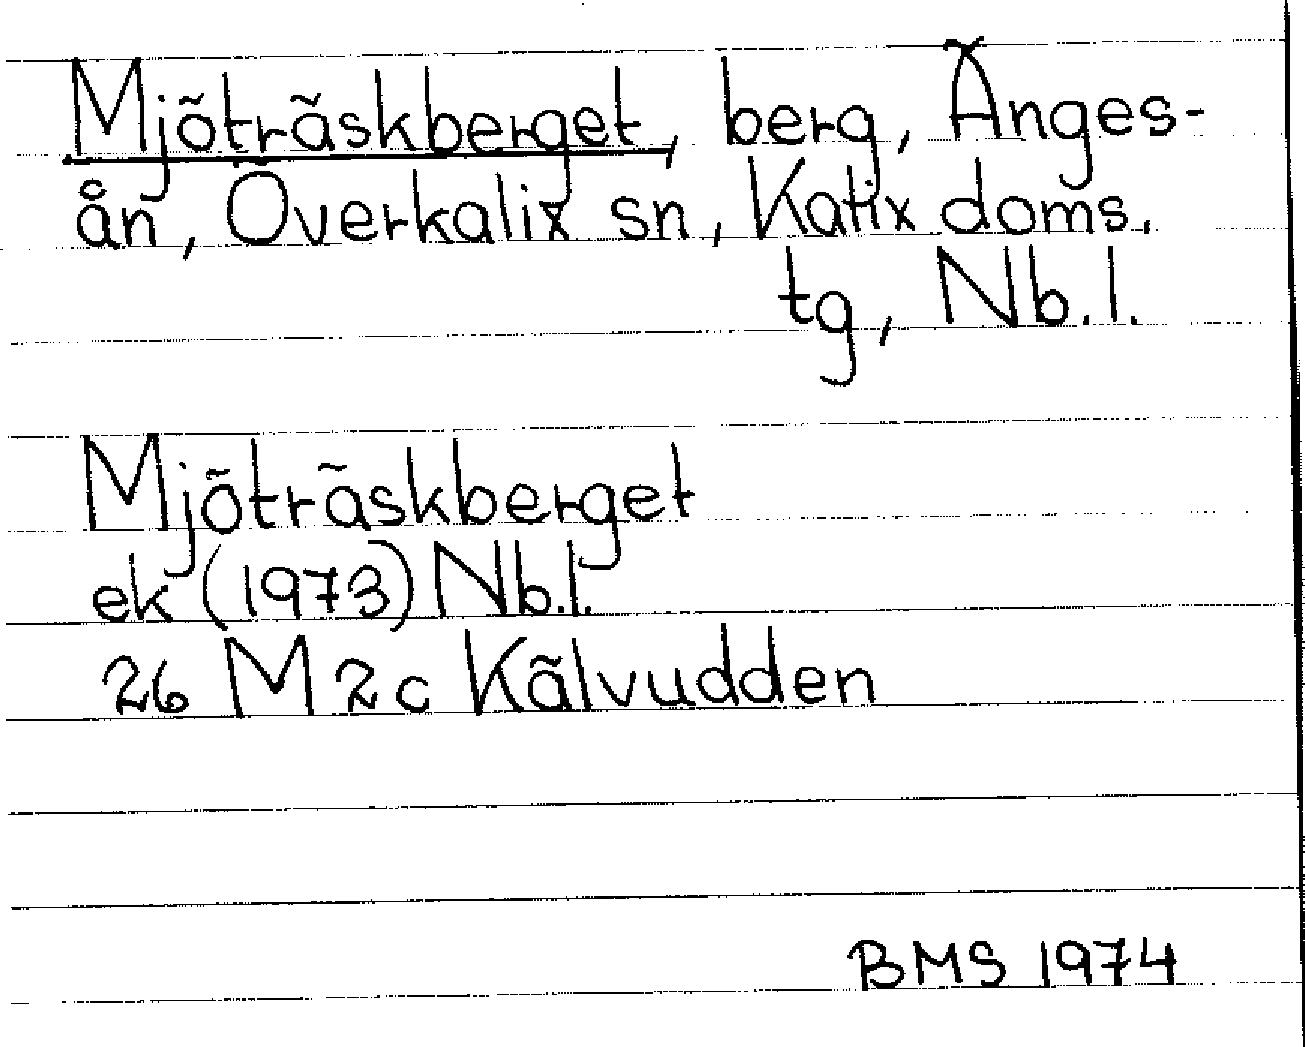 Mjöträskberget, berg, Änges-
ån, Överkalix sn, Kalix doms.
tg, Nb.l.
Mjöträskberget
ek (1973) Nb.l.
26 M 2c Kälvudden
BMS 1974